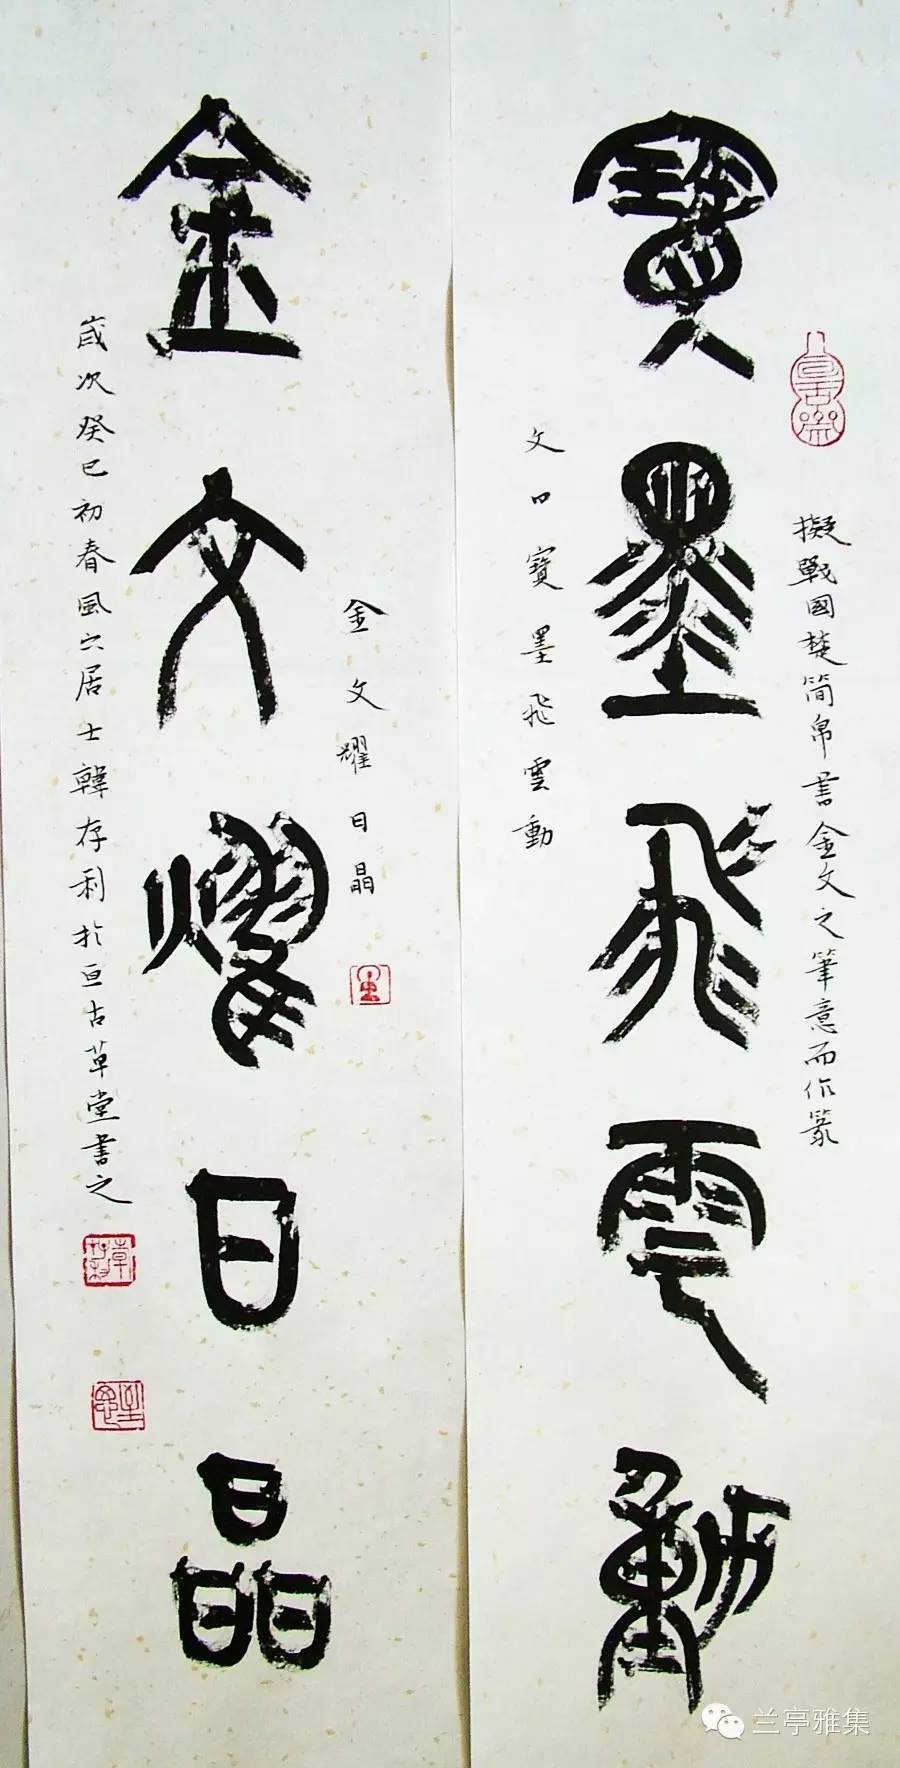 擬戰國楚简帛書金文之筆意而作篆
寶墨飛雲動
文曰寶墨飛雲動
金文耀日晶
金文燿日晶
歲次癸巳初春風六居士韓存利於亘古草堂書之
兰亭雅集